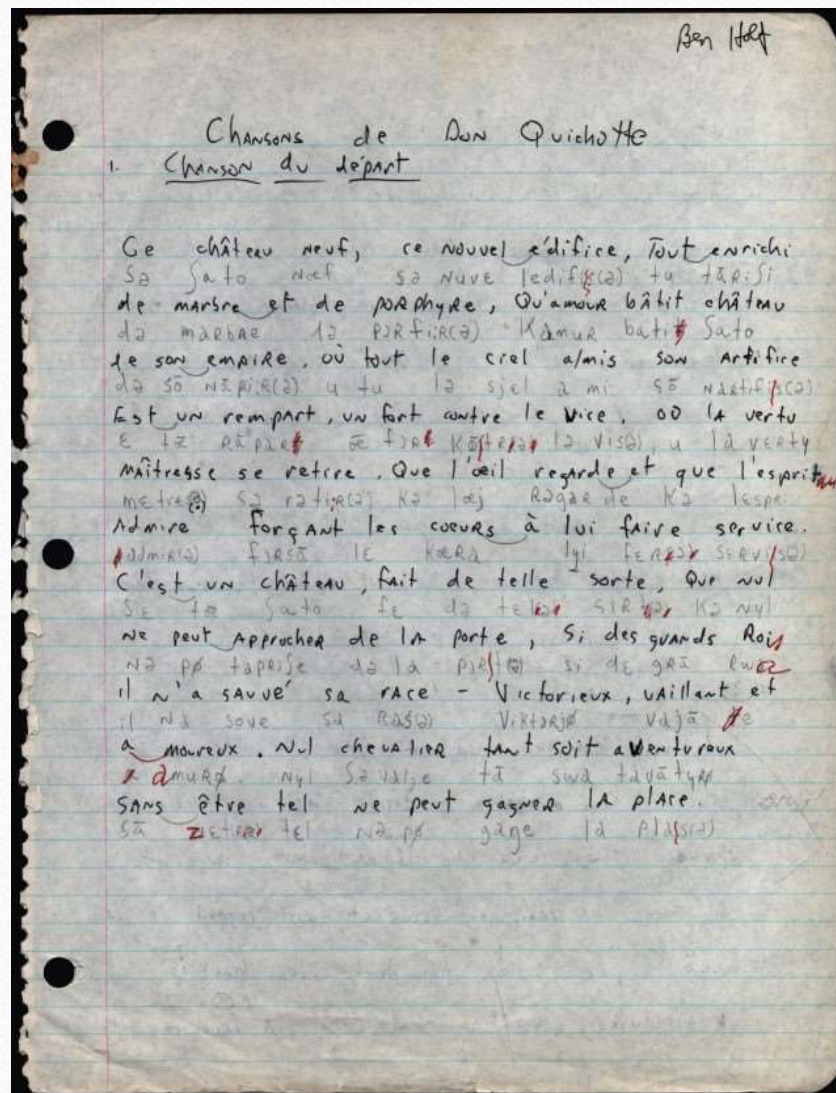 Ben Holt
Chansons de Don Quichotte
1. Chanson du départ
Ce château neuf, ce nouvel édifice, Tout enrichi
sə ʃato nœf sə nuvɛ ledifis(ə) tu tɑ̃riʃi
de marbre et de porphyre, Qu'amour bâtit château
də marbre də pɔrfir(ə) Kamur bati ʃato
de son empire, où tout le ciel a mis son artifice
də sɔ̃ nɑ̃pir(ə) u tu lə sjɛl a mi sɔ̃ nartifis(ə)
Est un rempart, un fort contre le vice, où la vertu
ɛ tœ̃ rɑ̃par œ̃ fɔr kɔ̃tr lə visə, u la vɛrty
Maîtresse se retire. Que l'œil regarde et que l'esprit
mɛtrɛ sə rətir(ə) Kə lœj rəgar de Kə lɛspri
Admire forçant les coeurs à lui faire service.
admir(ə) fɔrsɑ̃ lɛ Kœra lyi fɛr sɛrvis(ə)
C'est un château, fait de telle sorte, Que nul
sɛ tœ̃ ʃato fɛ də tɛl sɔrt Kə nyl
ne peut approcher de la porte, Si des grands Rois
nə pø taprɔʃe də la pɔrt(ə) si dɛ grɑ̃ rwa
il n'a sauvé sa race - Victorieux, vaillant et
il na sove sa ras(ə) Viktɔrjø vajɑ̃ te
amoureux. Nul chevalier tant soit aventureux
amurø. nyl ʃəvalje tɑ̃ swa tavɑ̃tyrø
Sans être tel ne peut gagner la place.
sɑ̃ zɛtr tɛl nə pø gaɲe la plas(ə)